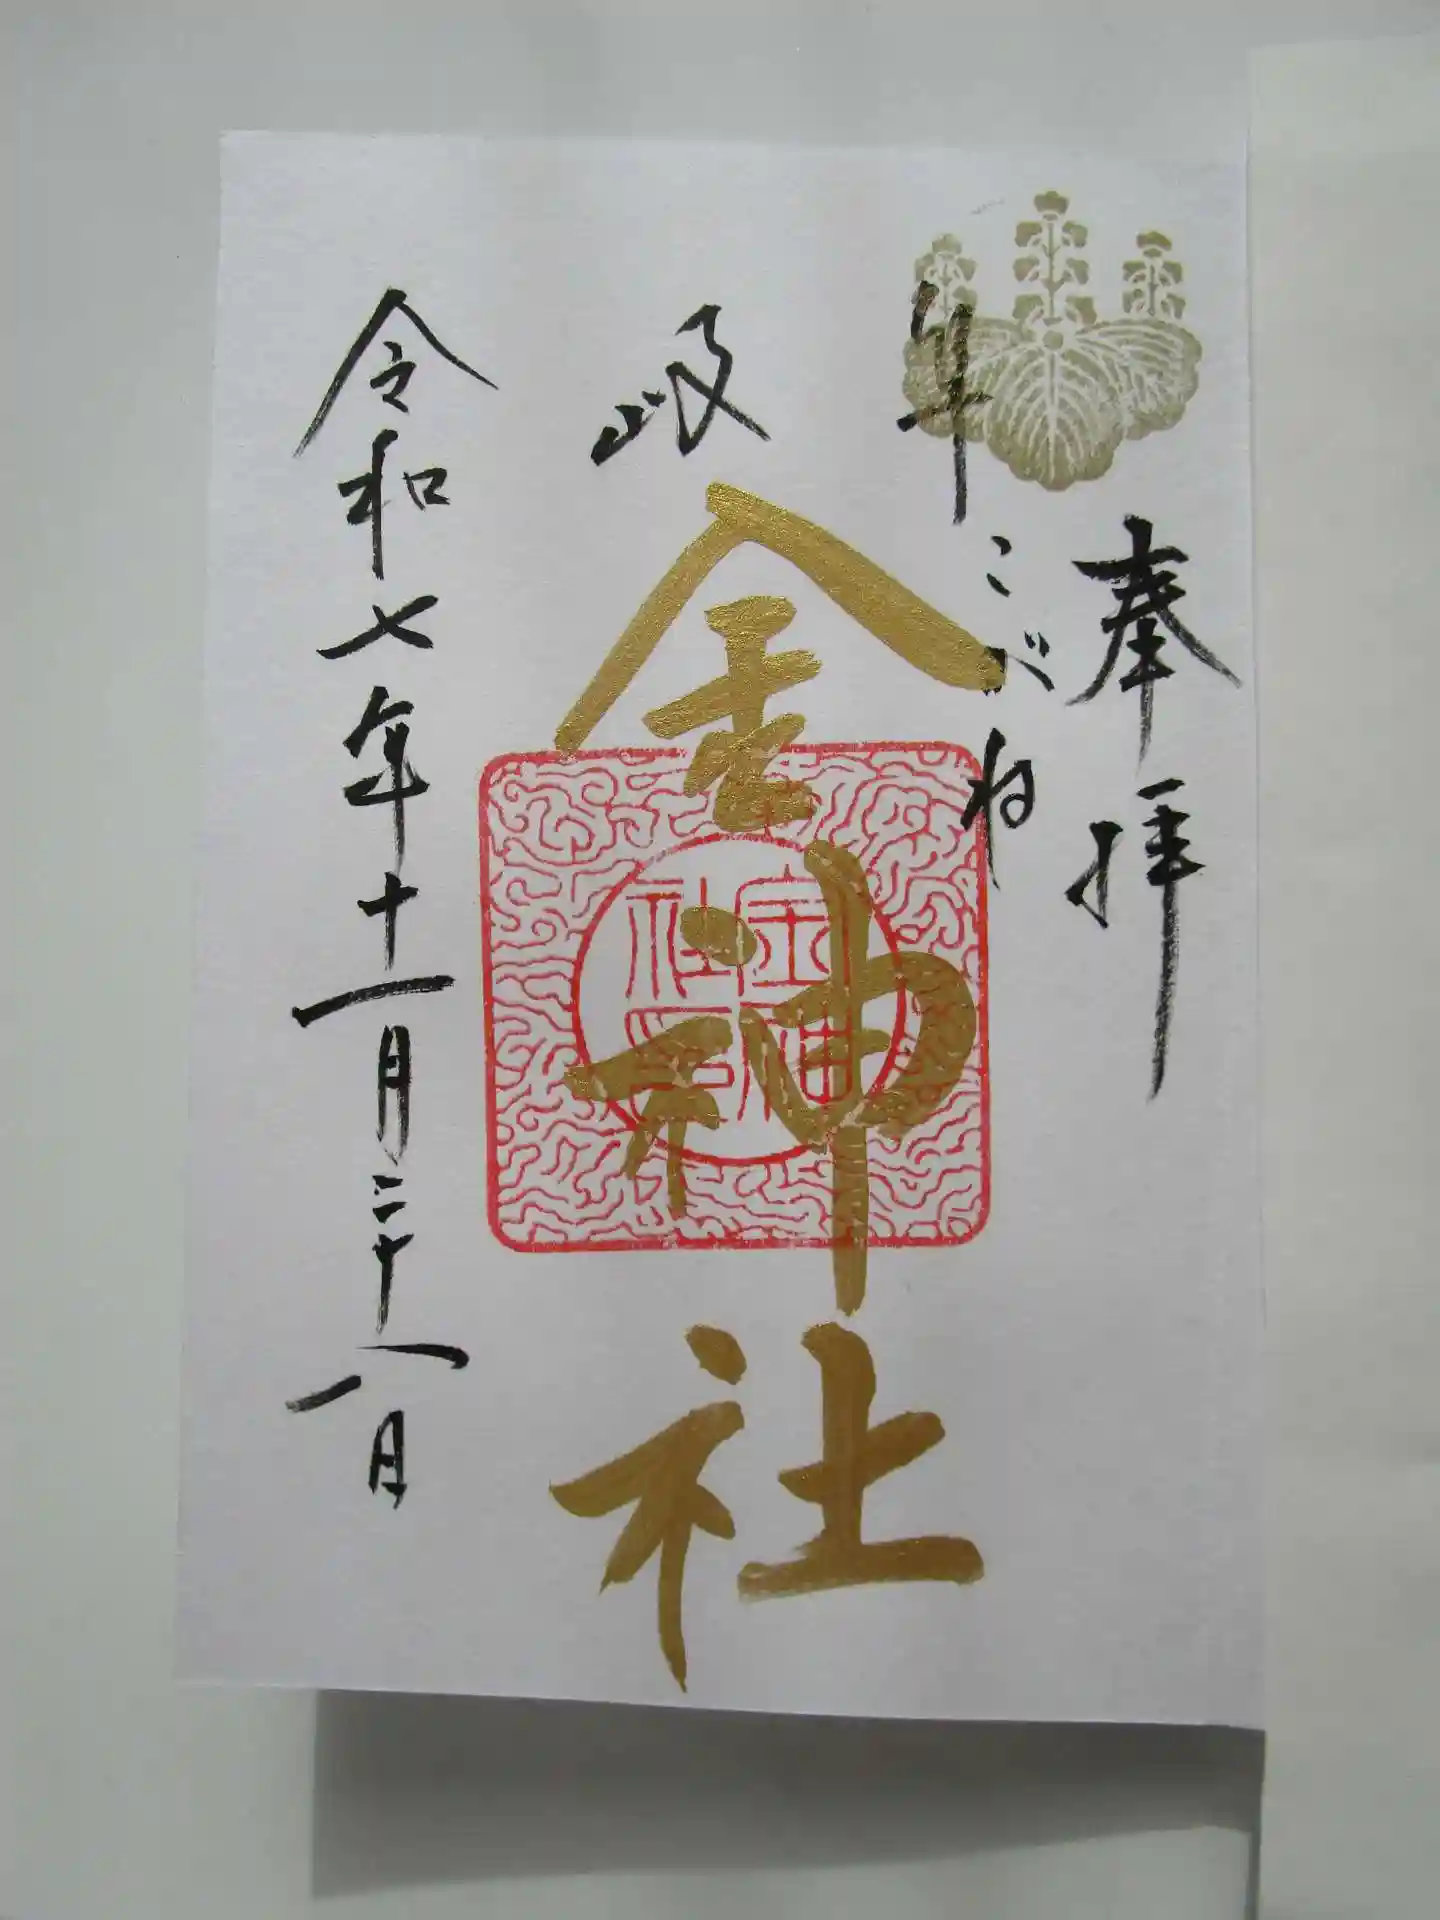 奉拝
岐阜
こがね
金神社
金神
社印
令和七年十一月二十八日